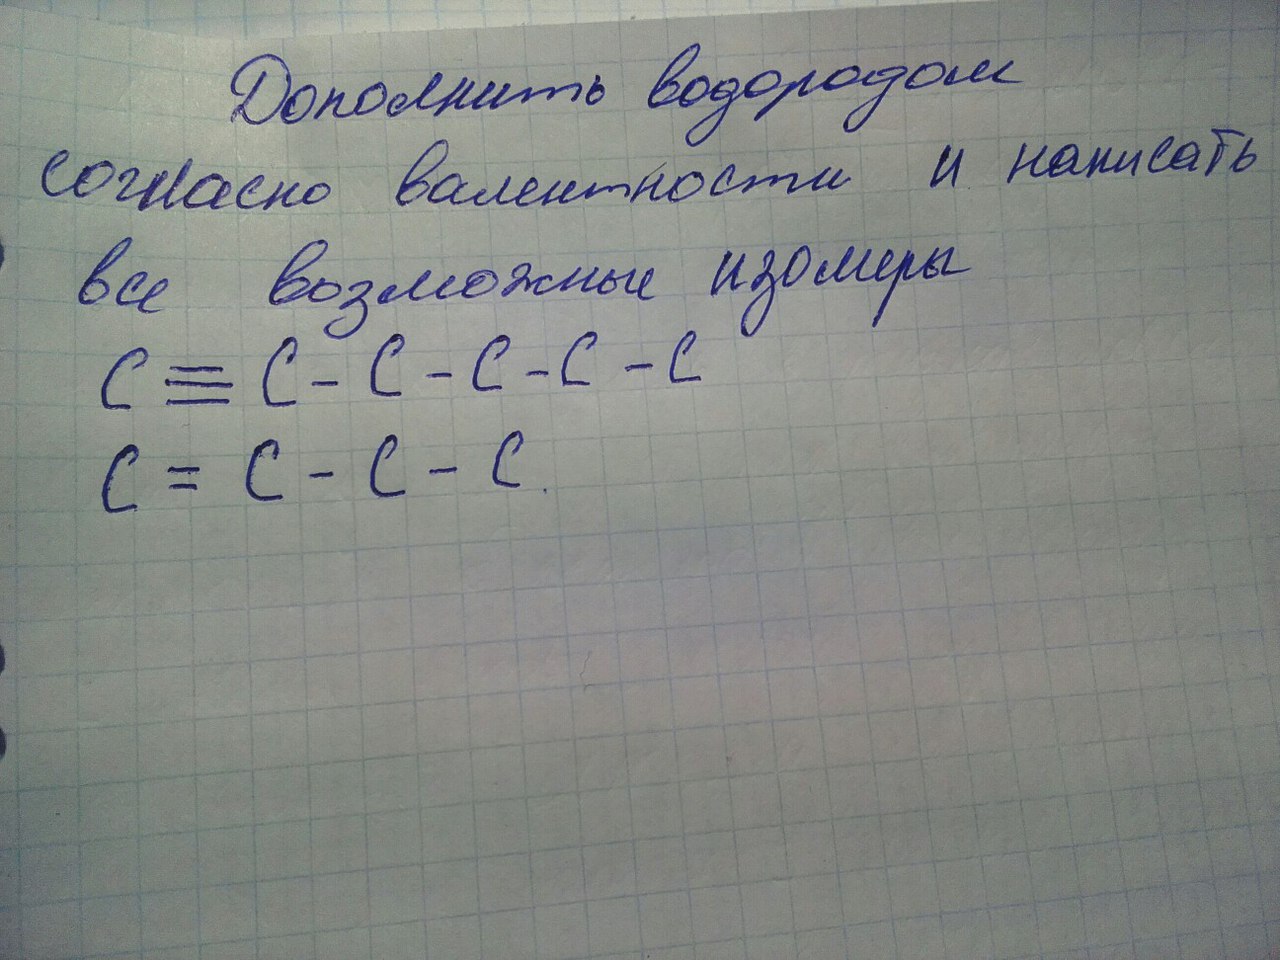 Дополнить водородом
согласно валентности и написать
все возможные изомеры
C ≡ C - C - C - C - C
C = C - C - C.